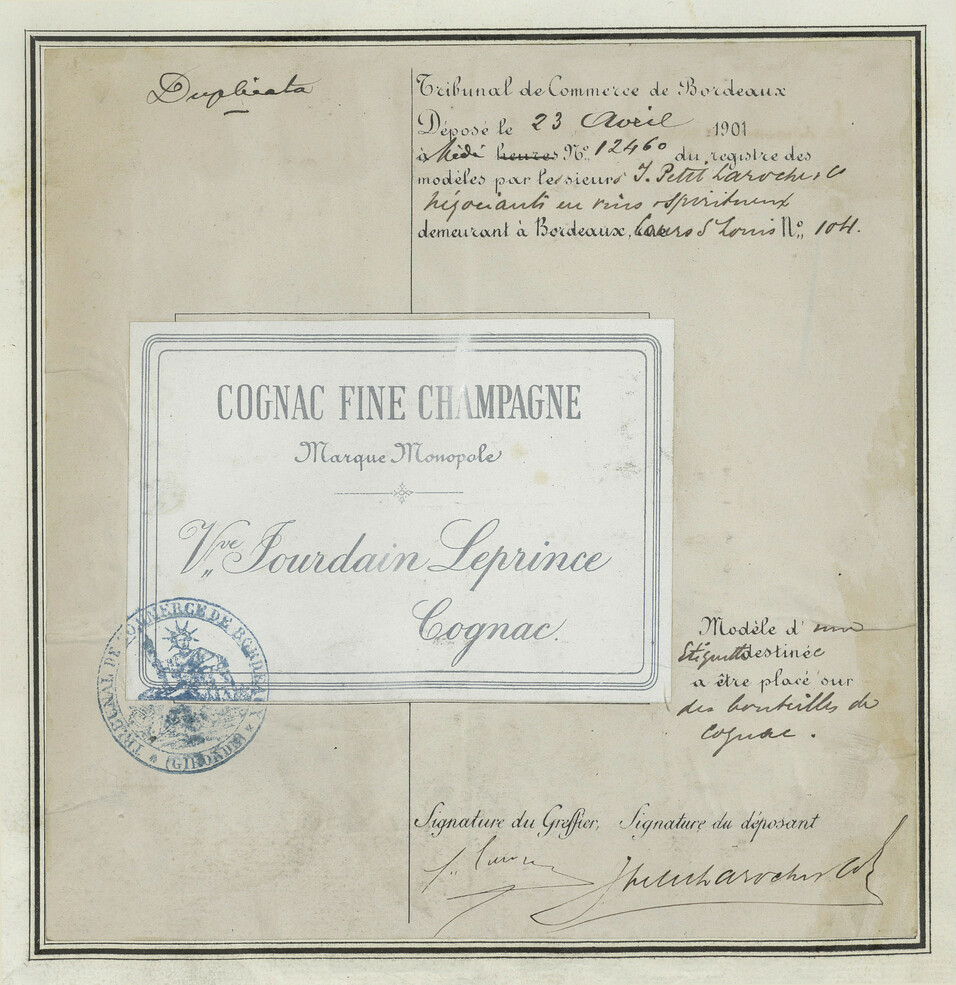 Duplicata
Tribunal de Commerce de Bordeaux
Déposé le 23 Avril 1901
à Midi heures N° 12460 du registre des
modèles par les sieurs J. Petit Laroche & Co
négociants en vins & spiritueux
demeurant à Bordeaux, Cours St Louis N° 104.
COGNAC FINE CHAMPAGNE
Marque Monopole
Vve Jourdain Leprince
Cognac.
TRIBUNAL DE COMMERCE DE BORDEAUX
(GIRONDE)
Modèle d'une
étiquette destinée
a être placé sur
des bouteilles de
Cognac.
Signature du Greffier, Signature du déposant
JPetitLaroche & Co